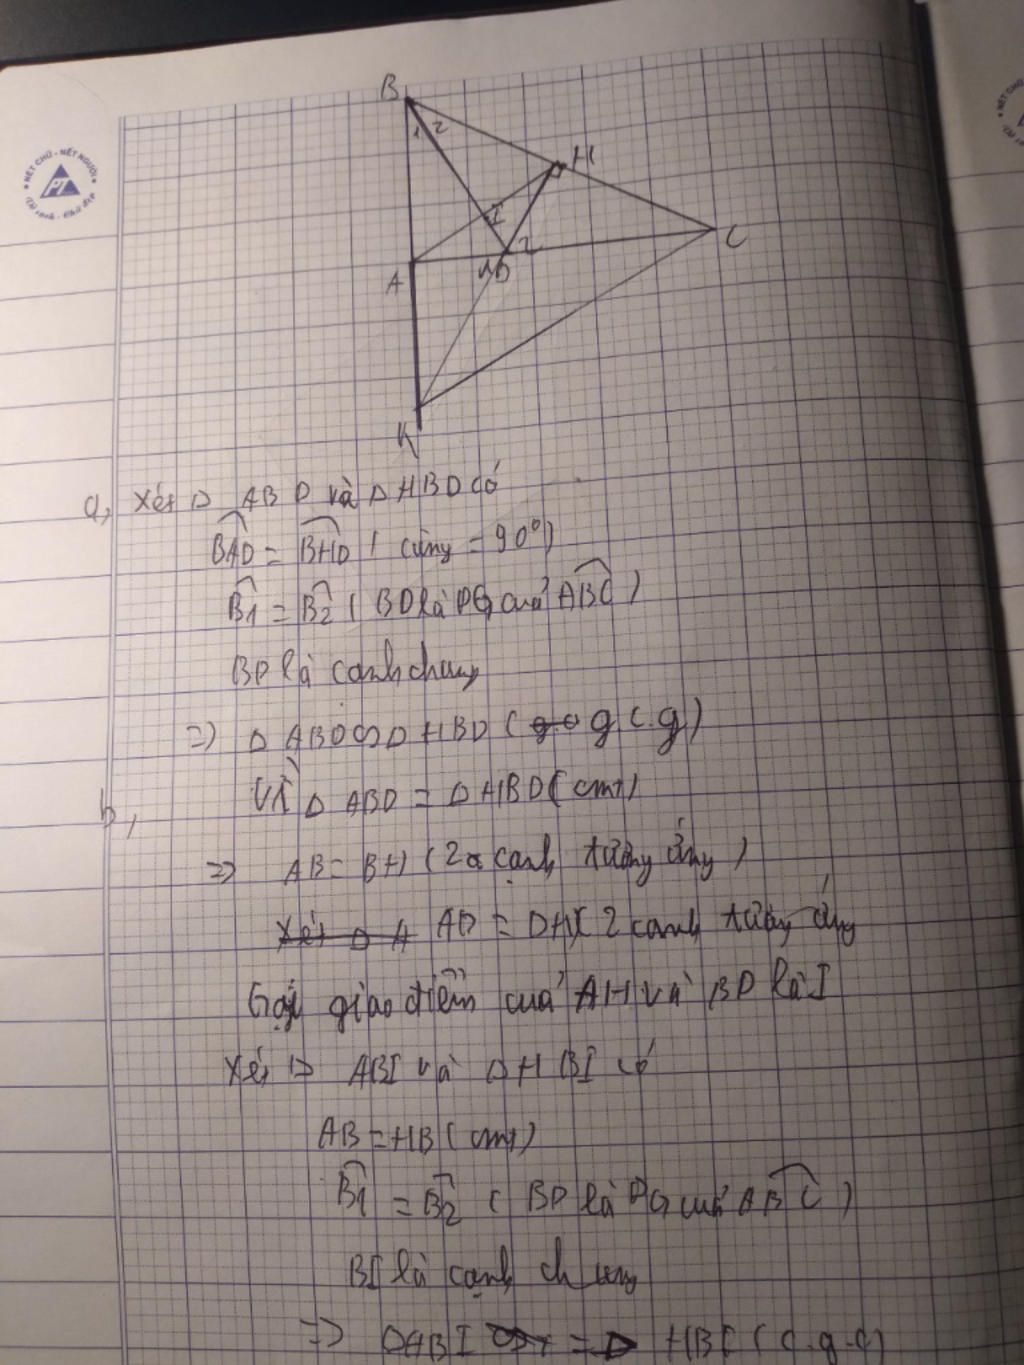 NÉT CHỮ - NẾT NGƯỜI
PT
B
1 2
H
I
A
1 D 2
C
K
a, Xét Δ ABD và Δ HBD có
BAD = BHD ( cùng = 90°)
B1 = B2 ( BD là PG của ABC )
BD là cạnh chung
=> Δ ABD Δ HBD ( g.c.g)
b, Vì Δ ABD = Δ HBD ( cmt)
=> AB = BH ( 2 cạnh tương ứng )
AD = DH( 2 cạnh tương ứng
Gọi giao điểm của AH và BD là I
Xét Δ ABI và Δ HBI có
AB = HB ( cmt)
B1 = B2 ( BD là PG của ABC )
BI là cạnh chung
=> Δ ABI = Δ HBI ( c.g.c)